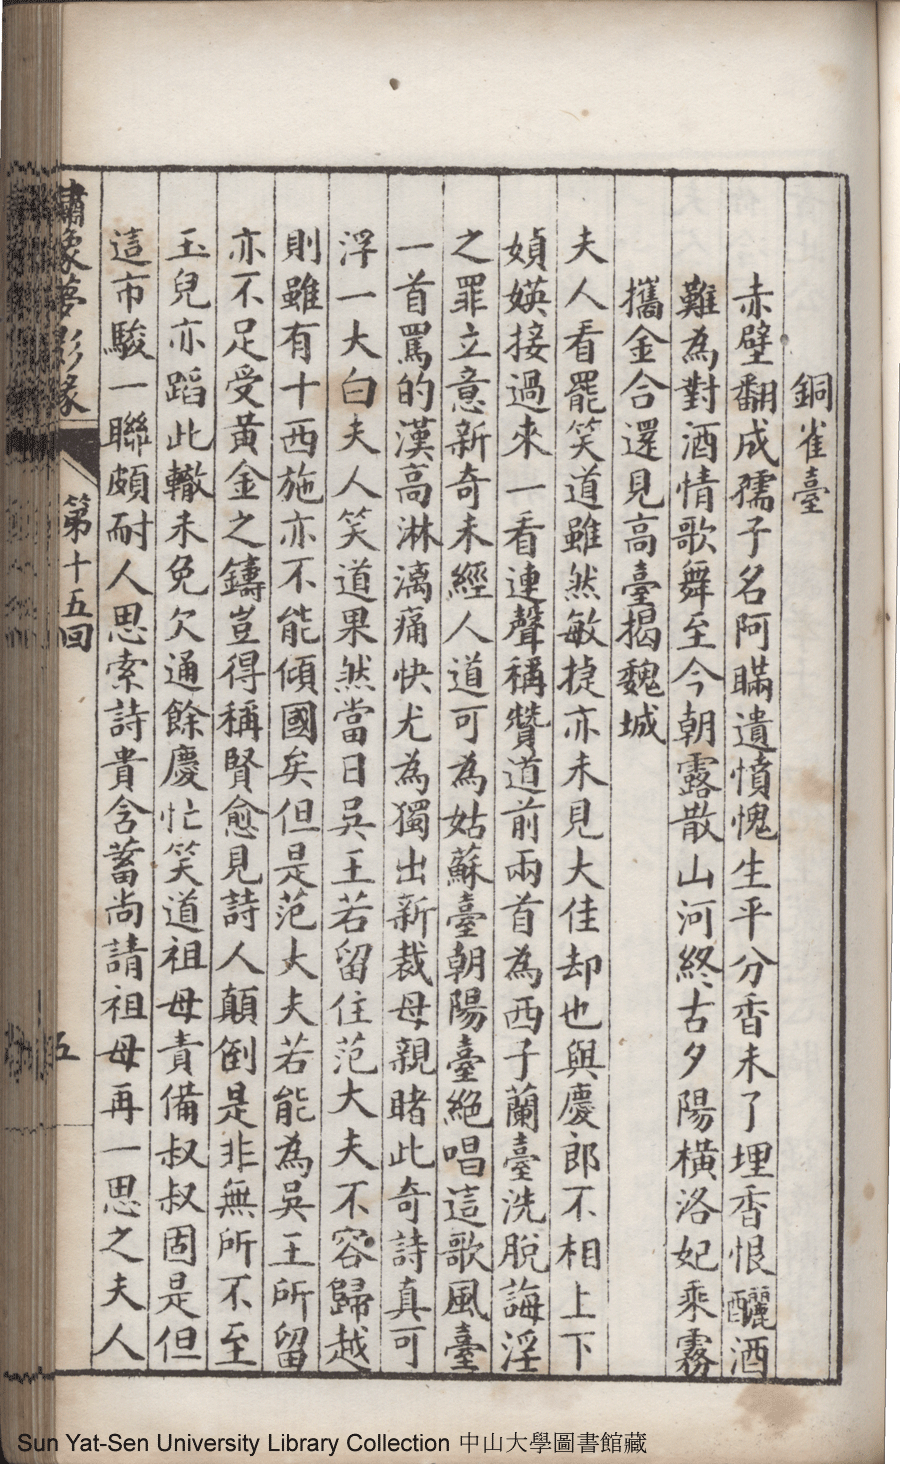 銅雀臺
赤壁翻成孺子名阿瞞遺憤愧生平分香未了埋香恨釃酒
難為對酒情歌舞至今朝露散山河終古夕陽橫洛妃乘霧
攜金合還見高臺揭魏城
夫人看罷笑道雖然敏捷亦未見大佳却也與慶郎不相上下
媜媖接過來一看連聲稱贊道前兩首為西子蘭臺洗脫誨淫
之罪立意新奇未經人道可為姑蘇臺朝陽臺絕唱這歌風臺
一首罵的漢高淋漓痛快尤為獨出新裁母親睹此奇詩真可
浮一大白夫人笑道果然當日吳王若留住范大夫不容歸越
則雖有十西施亦不能傾國矣但是范大夫若能為吳王所留
亦不足受黃金之鑄豈得稱賢愈見詩人顛倒是非無所不至
玉兒亦蹈此轍未免欠通餘慶忙笑道祖母責備叔叔固是但
這市駿一聯頗耐人思索詩貴含蓄尚請祖母再一思之夫人
繡像夢影緣
第十五回
五
Sun Yat-Sen University Library Collection 中山大學圖書館藏